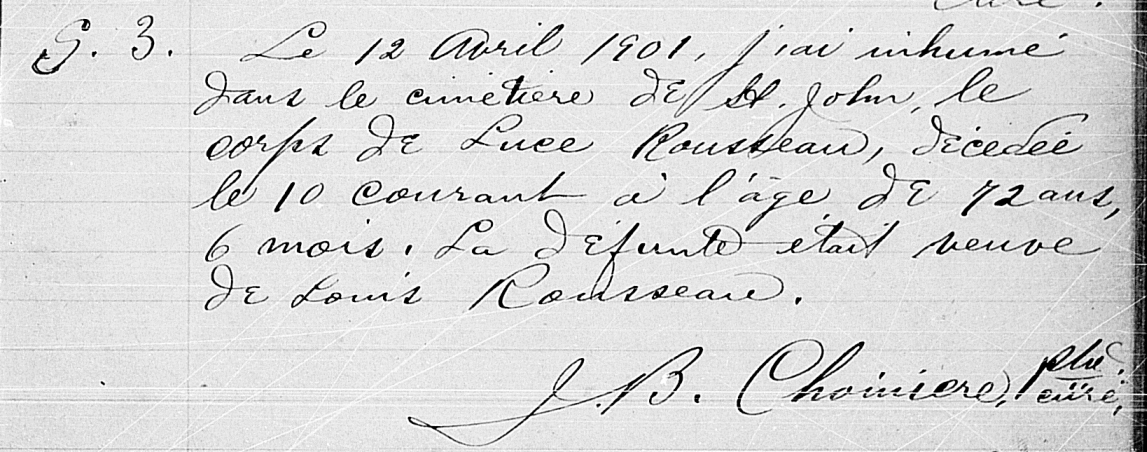 G. 3. Le 12 Avril 1901, j'ai inhumé
dans le cimetière de St. John, le
corps de Luce Rousseau, décédée
le 10 courant à l'âge de 72 ans,
6 mois. La défunte était veuve
de Louis Rousseau.
J. B. Choiniere, ptre
curé,